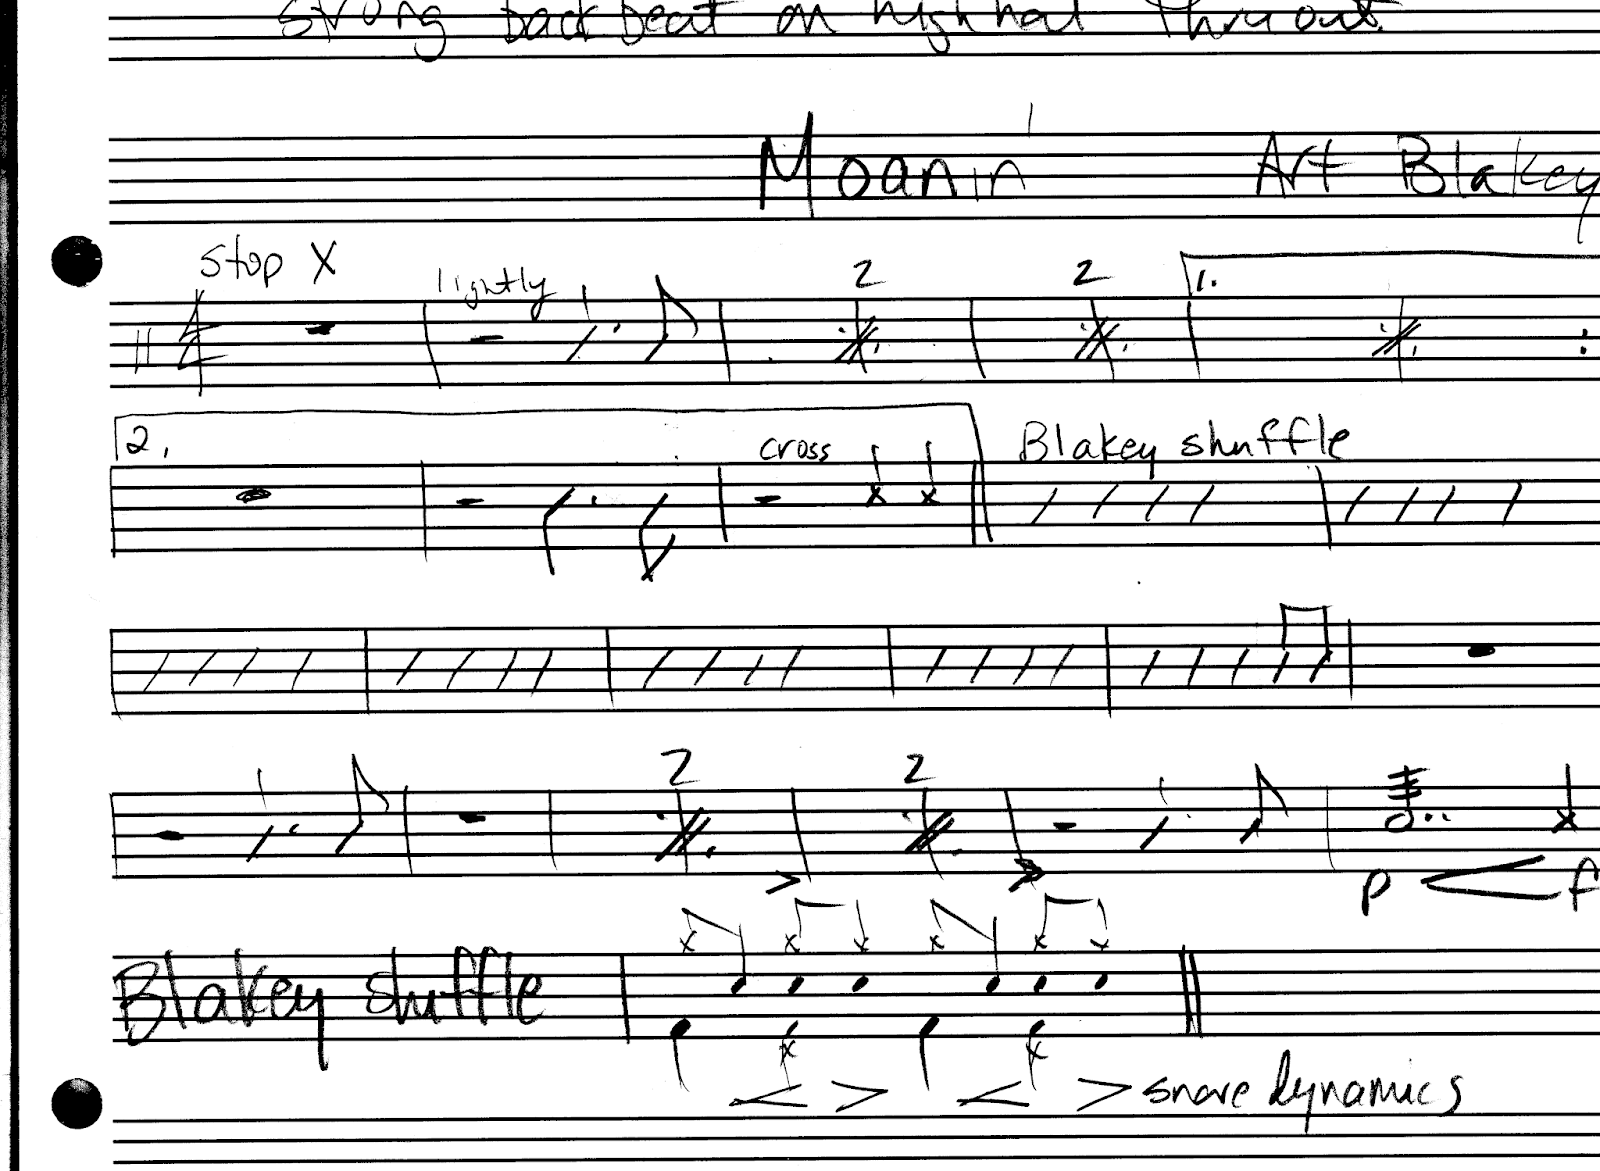 strong back beat on high hat thru out.
Moanin' Art Blakey
stop X
lightly 2 2 1.
2. cross Blakey shuffle
2 2
p f
Blakey shuffle
snare dynamics